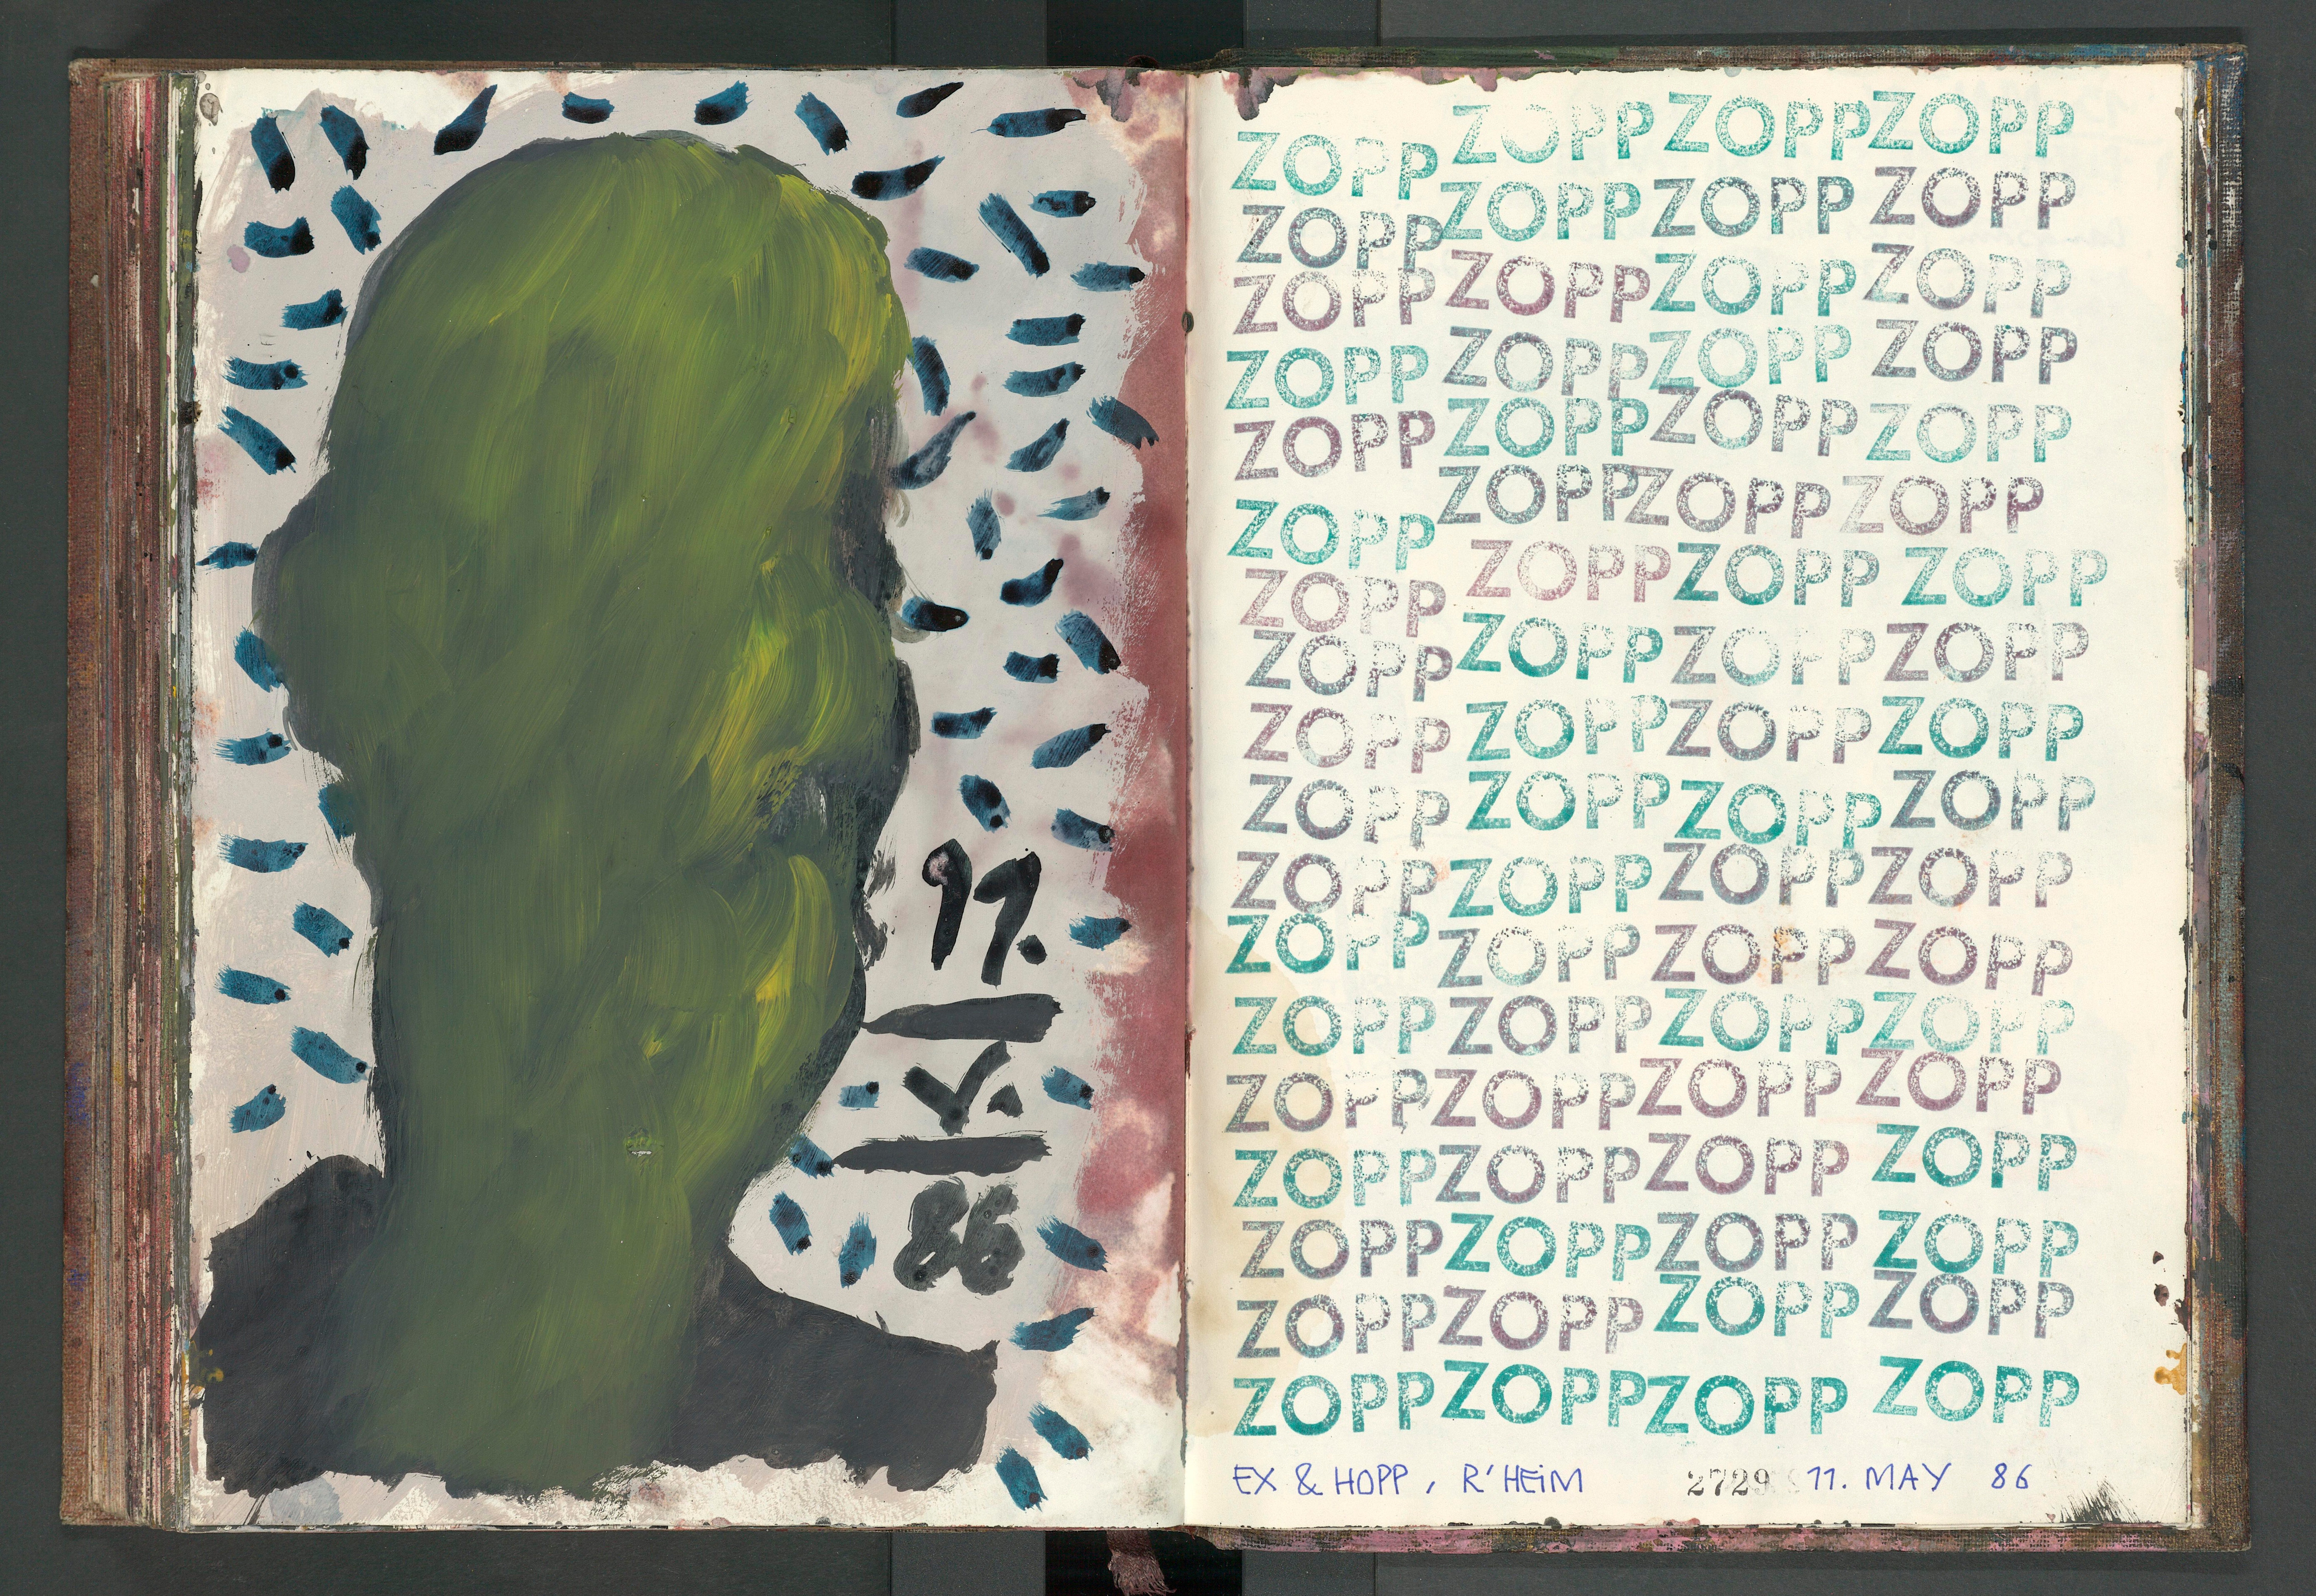 11.
V.
86
ZOPP ZOPP ZOPP ZOPP
ZOPP ZOPP ZOPP ZOPP
ZOPP ZOPP ZOPP ZOPP
ZOPP ZOPP ZOPP ZOPP
ZOPP ZOPP ZOPP ZOPP
ZOPP ZOPP ZOPP ZOPP
ZOPP ZOPP ZOPP ZOPP
ZOPP ZOPP ZOPP ZOPP
ZOPP ZOPP ZOPP ZOPP
ZOPP ZOPP ZOPP ZOPP
ZOPP ZOPP ZOPP ZOPP
ZOPP ZOPP ZOPP ZOPP
ZOPP ZOPP ZOPP ZOPP
ZOPP ZOPP ZOPP ZOPP
ZOPP ZOPP ZOPP ZOPP
ZOPP ZOPP ZOPP ZOPP
ZOPP ZOPP ZOPP ZOPP
ZOPP ZOPP ZOPP ZOPP
EX & HOPP, R'HEiM 2729 11. MAY 86